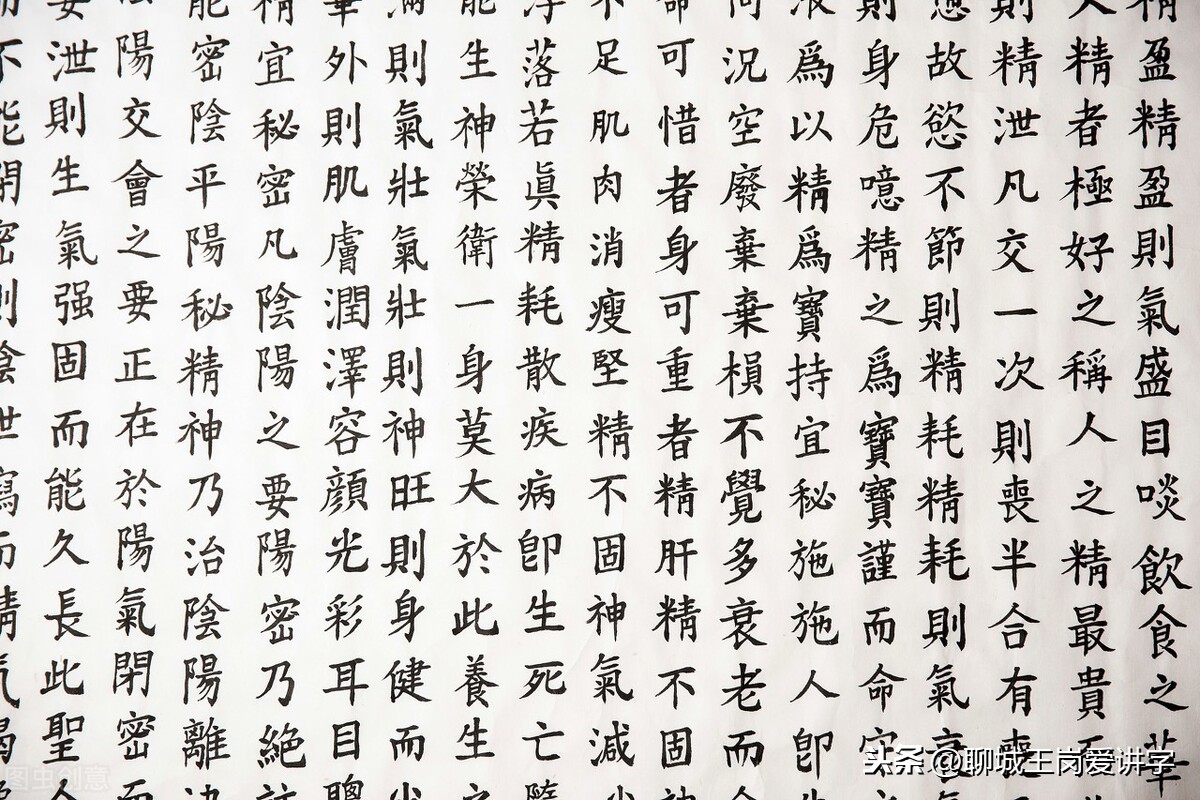 精盈精盈則氣盛目啖飲食之華
人精者極好之稱人之精最貴而
則精泄凡交一次則喪半合有喪
故慾不節則精耗精耗則氣衰
則身危噫精之爲寶寶謹而命
液爲以精爲寶持宜秘施施人卽生
何況空廢棄棄損不覺多衰老而命
命可惜者身可重者精肝精不固神
不足肌肉消瘦堅精不固神氣減少
浮落若眞精耗散疾病卽生死亡隨
能生神榮衛一身莫大於此養生之
滿則氣壯氣壯則神旺則身健而少
華外則肌膚潤澤容顔光彩耳目聰
精宜秘密凡陰陽之要陽密乃絕
能密陰平陽秘精神乃治陰陽離決
陽交會之要正在於陽氣閉密而
妄泄則生氣强固而能久長此聖人
不能閉密則陰泄寫而精气竭
头条 @聊城王岗爱讲字
图虫创意